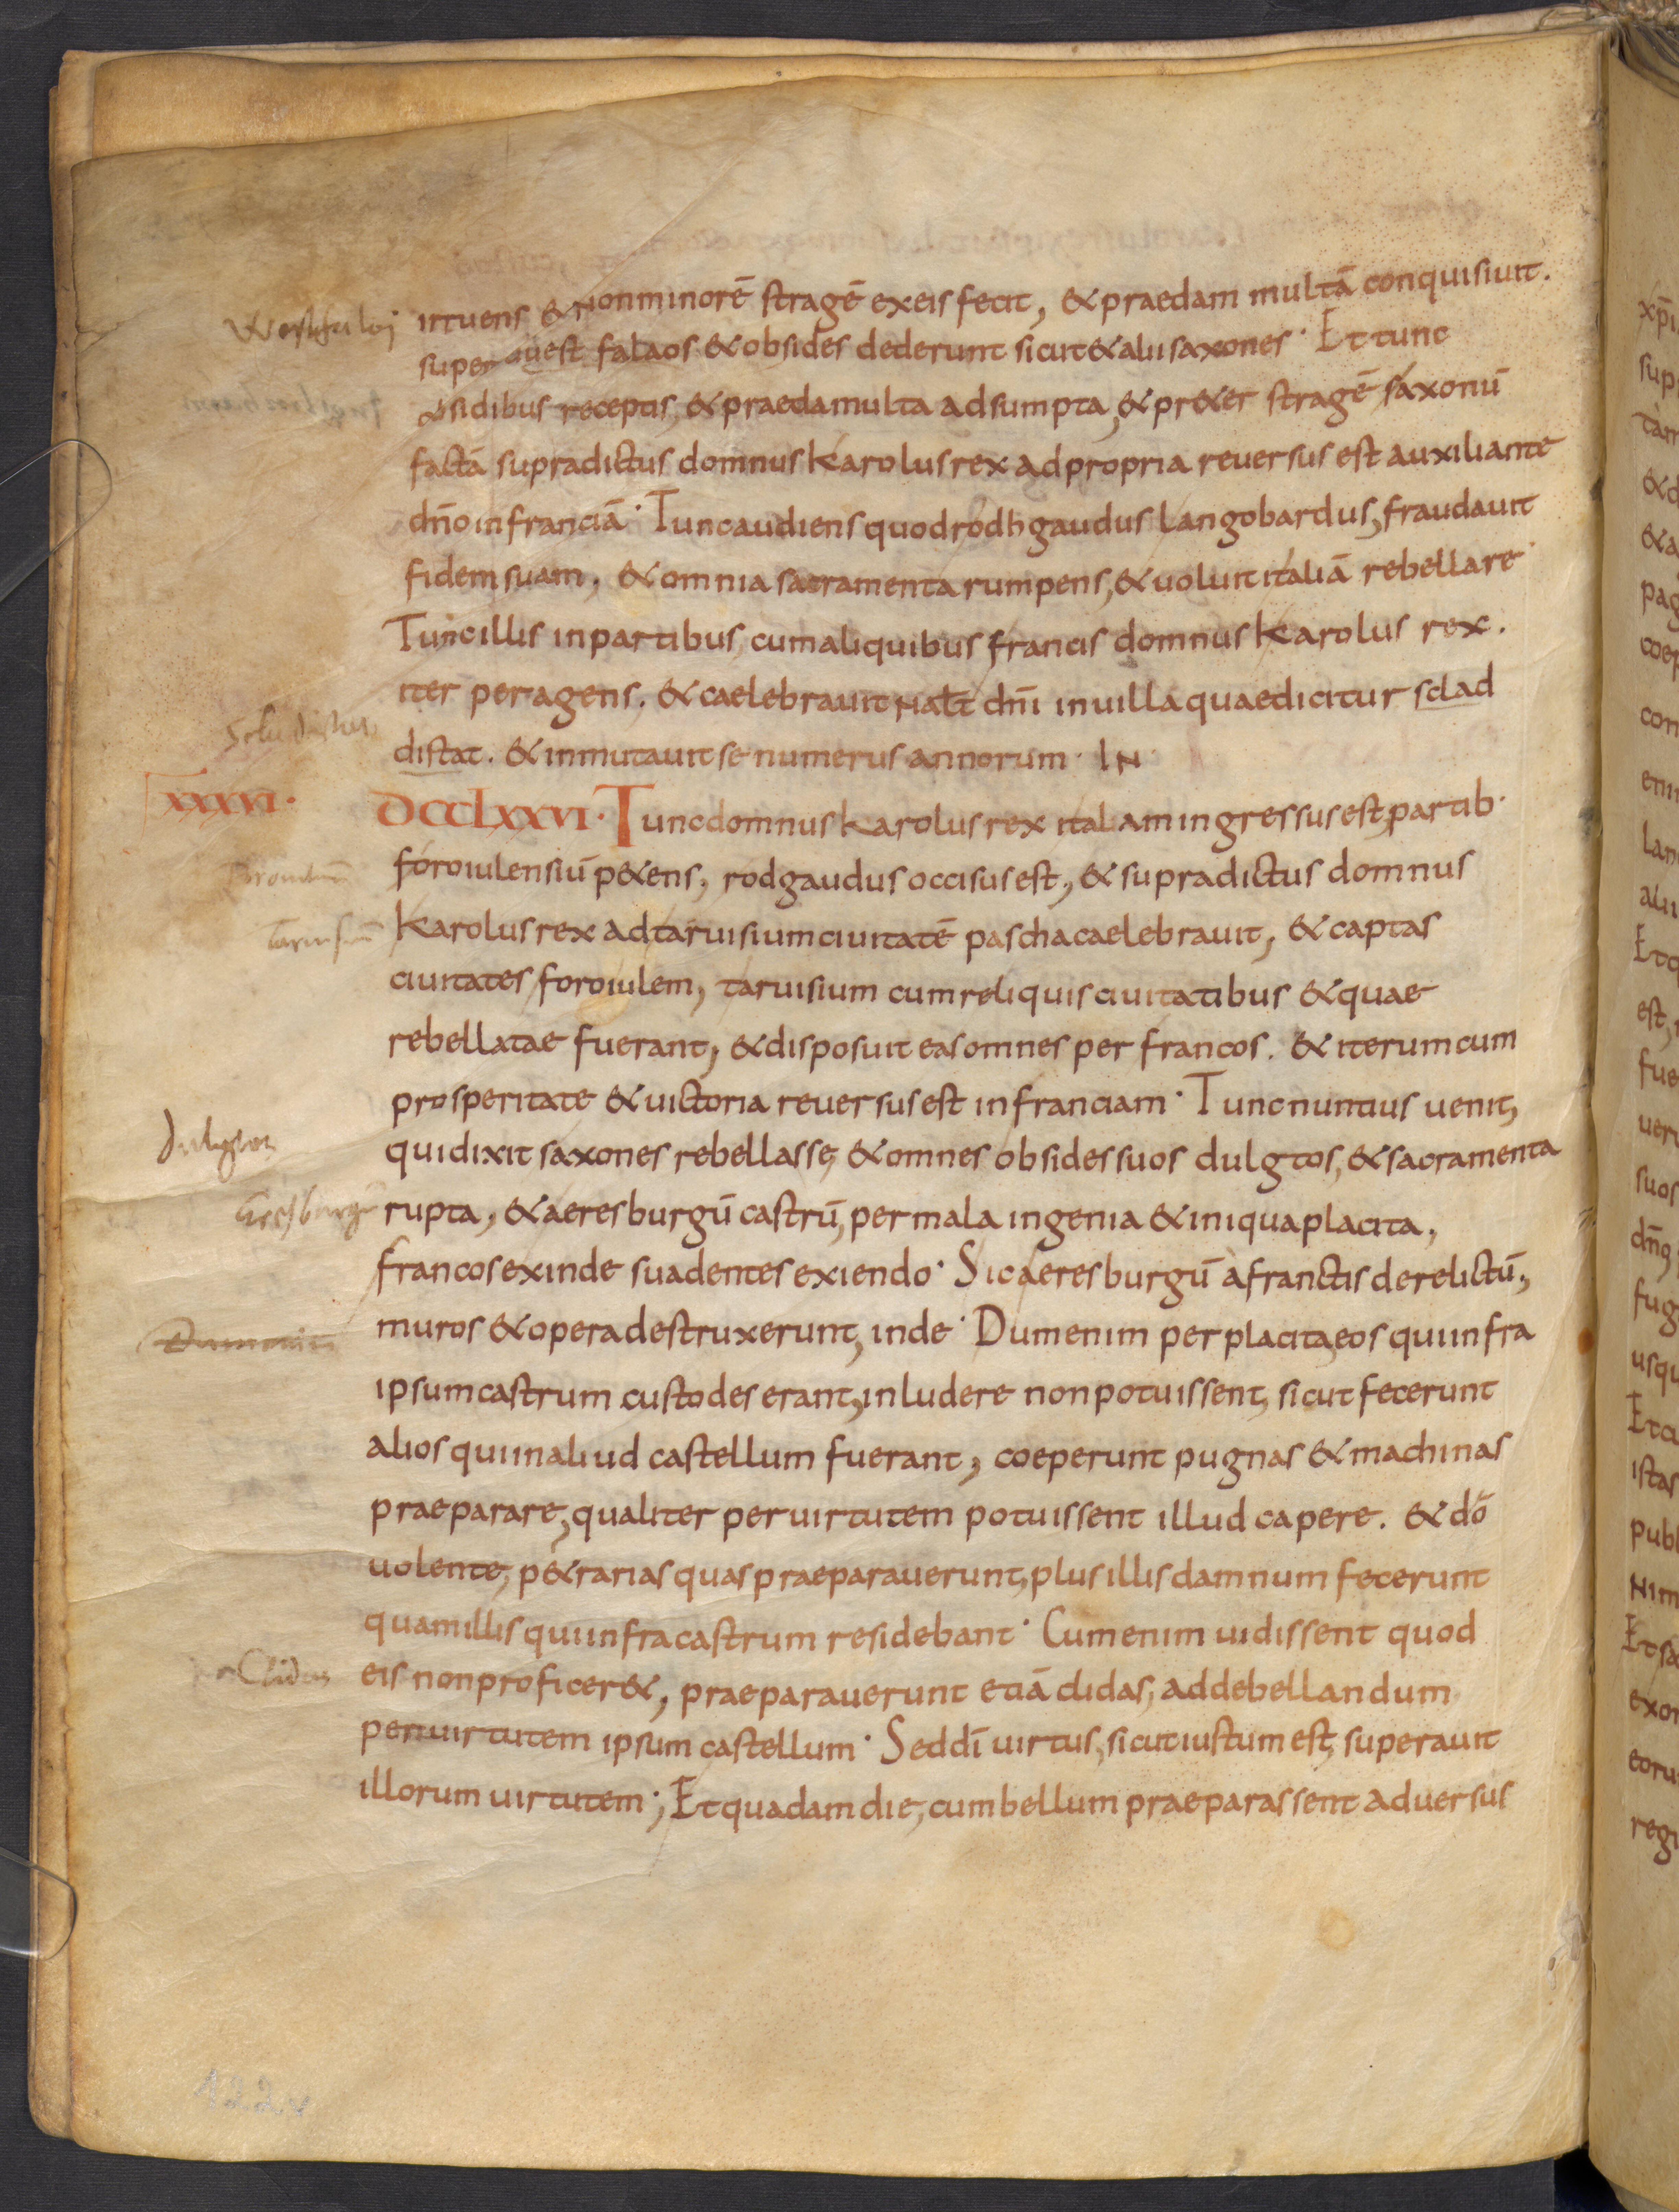 Westfaloj
irruens & non minorē stragē ex eis fecit, & praedam multā conquisiuit.
super ouest falaos & obsides dederunt sicut & alii saxones · Et tunc
obsidibus receptis, & praeda multa adsumpta, & pr&er stragē saxonū
factā supradictus domnus karolus rex ad propria reuersus est auxiliante
dn̄o in franciā · Tunc audiens quod rodhgaudus langobardus, fraudauit
fidem suam, & omnia sacramenta rumpens, & uoluit italiā rebellare ·
Tunc illis in partibus cum aliquibus francis domnus karolus rex .
iter peragens . & caelebrauit natt dn̄i in uilla quae dicitur sclad
distat . & inmutauit se numerus annorum · IN
XXXVI ·
DCCLXXVI · Tunc domnus karolus rex italiam ingressus est, partib·
foroiulensiū p&ens, rodgaudus occisus est, & supradictus domnus
Karolus rex ad taruisium ciuitatē pascha caelebrauit, & captas
ciuitates foroiulem, taruisium cum reliquis ciuitatibus & quae
rebellatae fuerant, & disposuit eas omnes per francos . & iterum cum
prosperitate & uictoria reuersus est in franciam · Tunc nuntius uenit,
qui dixit saxones rebellasse, & omnes obsides suos dulgtos, & sacramenta
Aeresburgū
rupta, & aeresburgū castrū, per mala ingenia & iniqua placita,
francos exinde suadentes exiendo · Sic aeresburgū a franctis derelictū,
muros & opera destruxerunt, inde · Dum enim per placita, eos qui infra
ipsum castrum custodes erant, inludere non potuissent, sicut fecerunt
alios qui in aliud castellum fuerant, coeperunt pugnas & machinas
praeparare, qualiter per uirtutem potuissent illud capere . & dō
uolente, p&rarias quas praeparauerunt, plus illis damnum fecerunt
quam illis qui infra castrum residebant · Cum enim uidissent quod
Clidas
eis non proficer&, praeparauerunt etiā clidas, ad debellandum
per uirtutem ipsum castellum · Sed dī uirtus, sicut iustum est, superauit
illorum uirtutem ; Et quadam die, cum bellum praeparassent aduersus